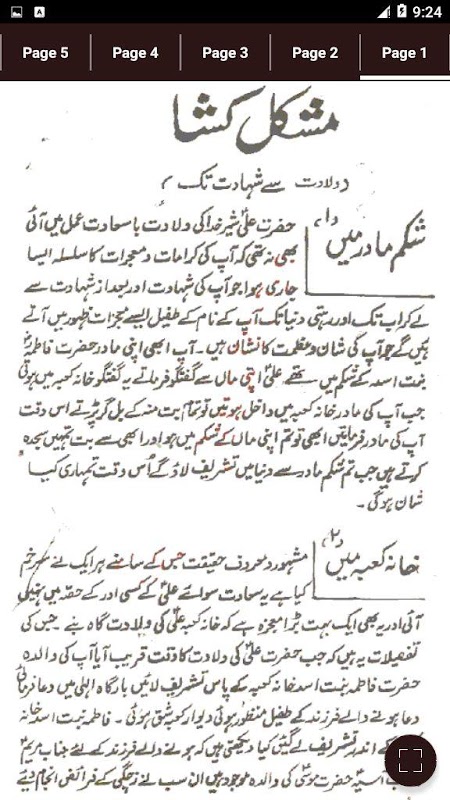 9:24
Page 5 Page 4 Page 3 Page 2 Page 1
مشکل کشا
(ولادت سے شہادت تک)
(۱)
شکم مادر میں
حضرت علیؑ شیر خدا کی ولادت با سعادت عمل میں آئی
بھی نہ تھی کہ آپ کی کرامات و معجزات کا سلسلہ ایسا
جاری ہوا، جو آپ کی شہادت اور بعد از شہادت سے
لے کر اب تک اور رہتی دنیا تک آپ کے نام کے طفیل ایسے معجزات ظہور میں آتے
رہیں گے جو آپ کی شان و عظمت کا نشان ہیں۔ آپ ابھی اپنی مادر حضرت فاطمہؑ
بنت اسد کے شکم میں تھے علیؑ اپنی ماں سے گفتگو فرماتے یہ گفتگو خانہ کعبہ میں ہوئی
جب آپ کی مادر خانہ کعبہ میں داخل ہوتیں تو تمام بت منہ کے بل گر پڑتے اس وقت
آپ کی مادر فرماتیں ابھی تو تم اپنی ماں کے شکم میں ہو اور ابھی سے بت تمہیں سجدہ
کرتے ہیں جب تم شکم مادر سے دنیا میں تشریف لاؤ گے اُس وقت تمہاری کیا
شان ہوگی۔
(۲)
خانہ کعبہ میں
مشہور و معروف حقیقت جس کے سامنے ہر ایک نے سر خم
کیا ہے یہ سعادت سوائے علیؑ کے کسی اور کے حصہ میں نہیں
آئی اور یہ بھی ایک بہت بڑا معجزہ ہے کہ خانہ کعبہ علیؑ کی ولادت گاہ بنے جس کی
تفصیلات یہ ہیں کہ جب حضرت علیؑ کی ولادت کا وقت قریب آیا آپ کی والدہ
حضرت فاطمہ بنت اسد خانہ کعبہ کے پاس تشریف لائیں بارگاہ الٰہی میں دعا فرمائی
دعا ہونے والے فرزند کے طفیل منظور ہوئی دیوار کعبہ شق ہوئی۔ فاطمہ بنت اسد خانہ
کے اندر تشریف لے گئیں کیا دیکھتی ہیں کہ ہونے والے فرزند کے لئے جناب مریمؑ
آسیہؑ حضرت موسیٰؑ کی والدہ موجود ہیں ان سب نے زچگی کے فرائض انجام دیئے